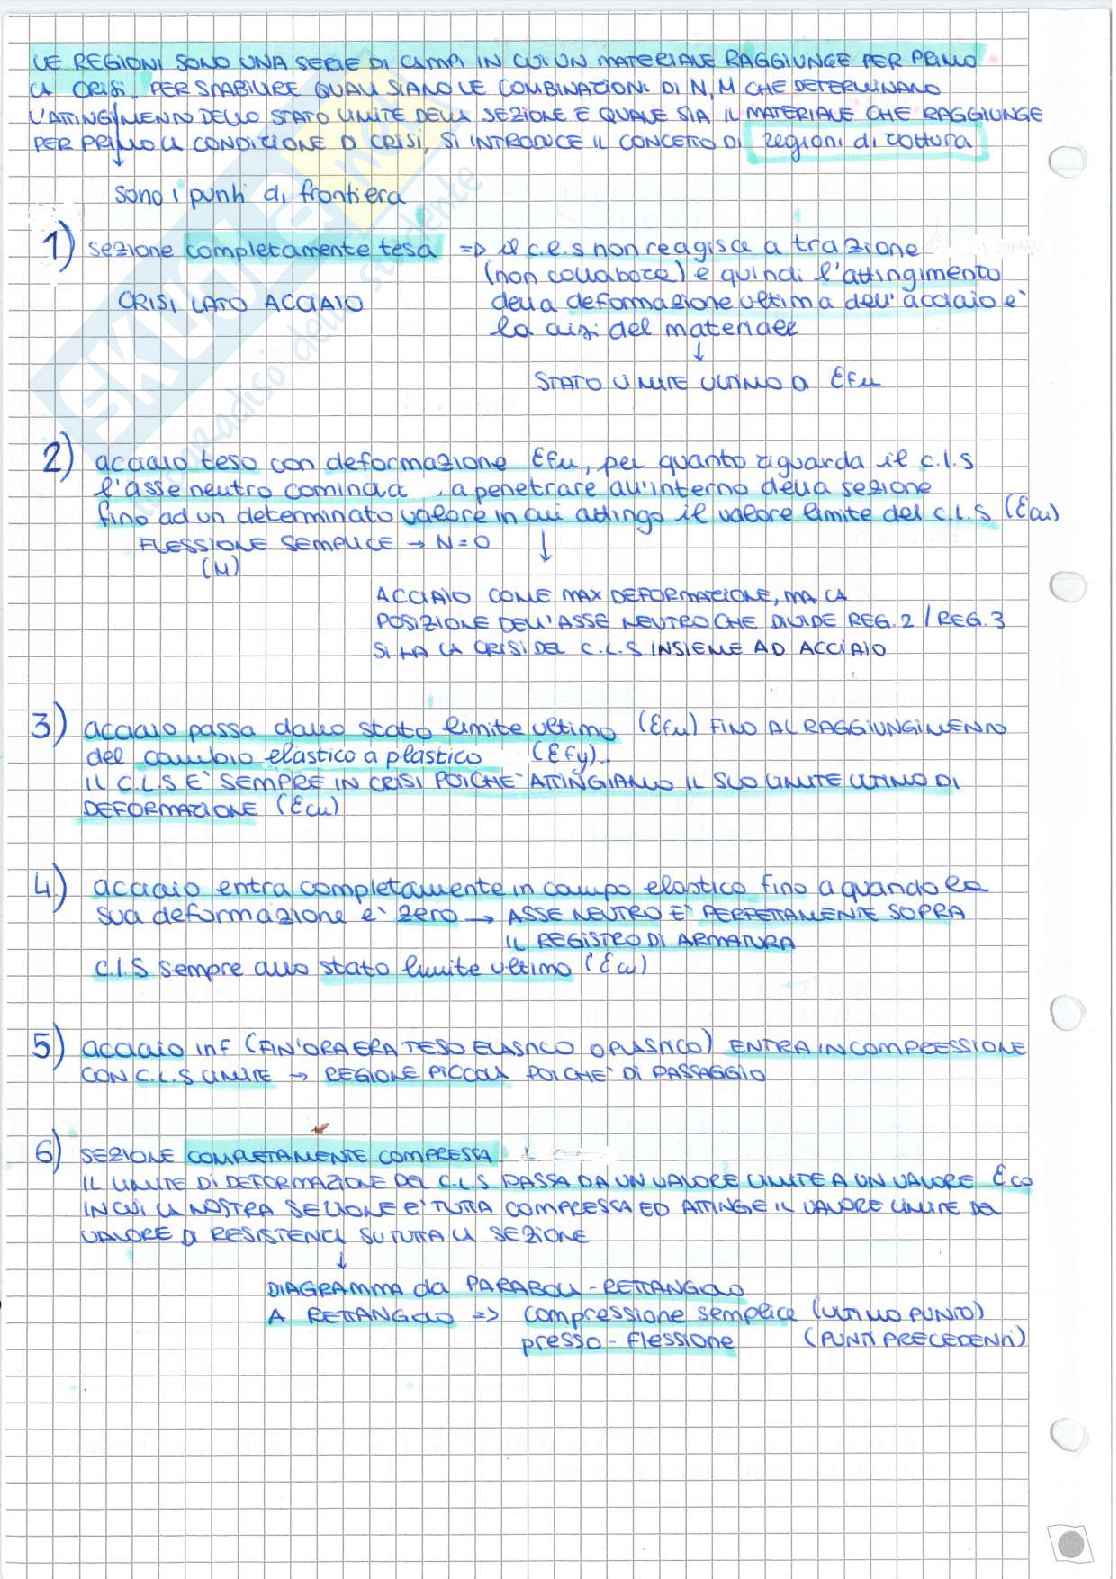 LE REGIONI SONO UNA SERIE DI CAMPI IN CUI UN MATERIALE RAGGIUNGE PER PRIMO
LA CRISI. PER STABILIRE QUALI SIANO LE COMBINAZIONI DI N, M CHE DETERMINANO
L'ATTINGIMENTO DELLO STATO LIMITE DELLA SEZIONE E QUALE SIA IL MATERIALE CHE RAGGIUNGE
PER PRIMO LA CONDIZIONE DI CRISI, SI INTRODUCE IL CONCETTO DI regioni di rottura
sono i punti di frontiera
1) sezione completamente tesa => il c.l.s non reagisce a trazione
(non collabora) e quindi l'attingimento
CRISI LATO ACCIAIO della deformazione ultima dell'acciaio è
la crisi del materiale
↓
STATO LIMITE ULTIMO a Efu
2) acciaio teso con deformazione Efu, per quanto riguarda il c.l.s
l'asse neutro comincia a penetrare all'interno della sezione
fino ad un determinato valore in cui attingo il valore limite del c.l.s (Ecu)
FLESSIONE SEMPLICE → N=0 ↓
(M)
ACCIAIO COME MAX DEFORMAZIONE, MA LA
POSIZIONE DELL'ASSE NEUTRO CHE DIVIDE REG. 2 / REG. 3
SI HA LA CRISI DEL C.L.S INSIEME AD ACCIAIO
3) acciaio passa dallo stato limite ultimo (Efu) FINO AL RAGGIUNGIMENTO
del cambio elastico a plastico (Efy).
IL C.L.S E' SEMPRE IN CRISI POICHE' ATTINGIAMO IL SUO LIMITE ULTIMO DI
DEFORMAZIONE (Ecu)
4) acciaio entra completamente in campo elastico fino a quando la
sua deformazione e' zero → ASSE NEUTRO E' PERFETTAMENTE SOPRA
IL REGISTRO DI ARMATURA
C.l.S sempre allo stato limite ultimo (Ecu)
5) acciaio inf (FIN'ORA ERA TESO ELASTICO O PLASTICO) ENTRA IN COMPRESSIONE
CON C.L.S LIMITE → REGIONE PICCOLA POICHE' DI PASSAGGIO
6) SEZIONE COMPLETAMENTE COMPRESSA
IL LIMITE DI DEFORMAZIONE DEL C.L.S PASSA DA UN VALORE LIMITE A UN VALORE Eco
IN CUI LA NOSTRA SEZIONE E' TUTTA COMPRESSA ED ATTINGE IL VALORE LIMITE DEL
VALORE DI RESISTENZA SU TUTTA LA SEZIONE
↓
DIAGRAMMA da PARABOLA-RETTANGOLO
A RETTANGOLO => compressione semplice (ULTIMO PUNTO)
presso-flessione (PUNTI PRECEDENTI)